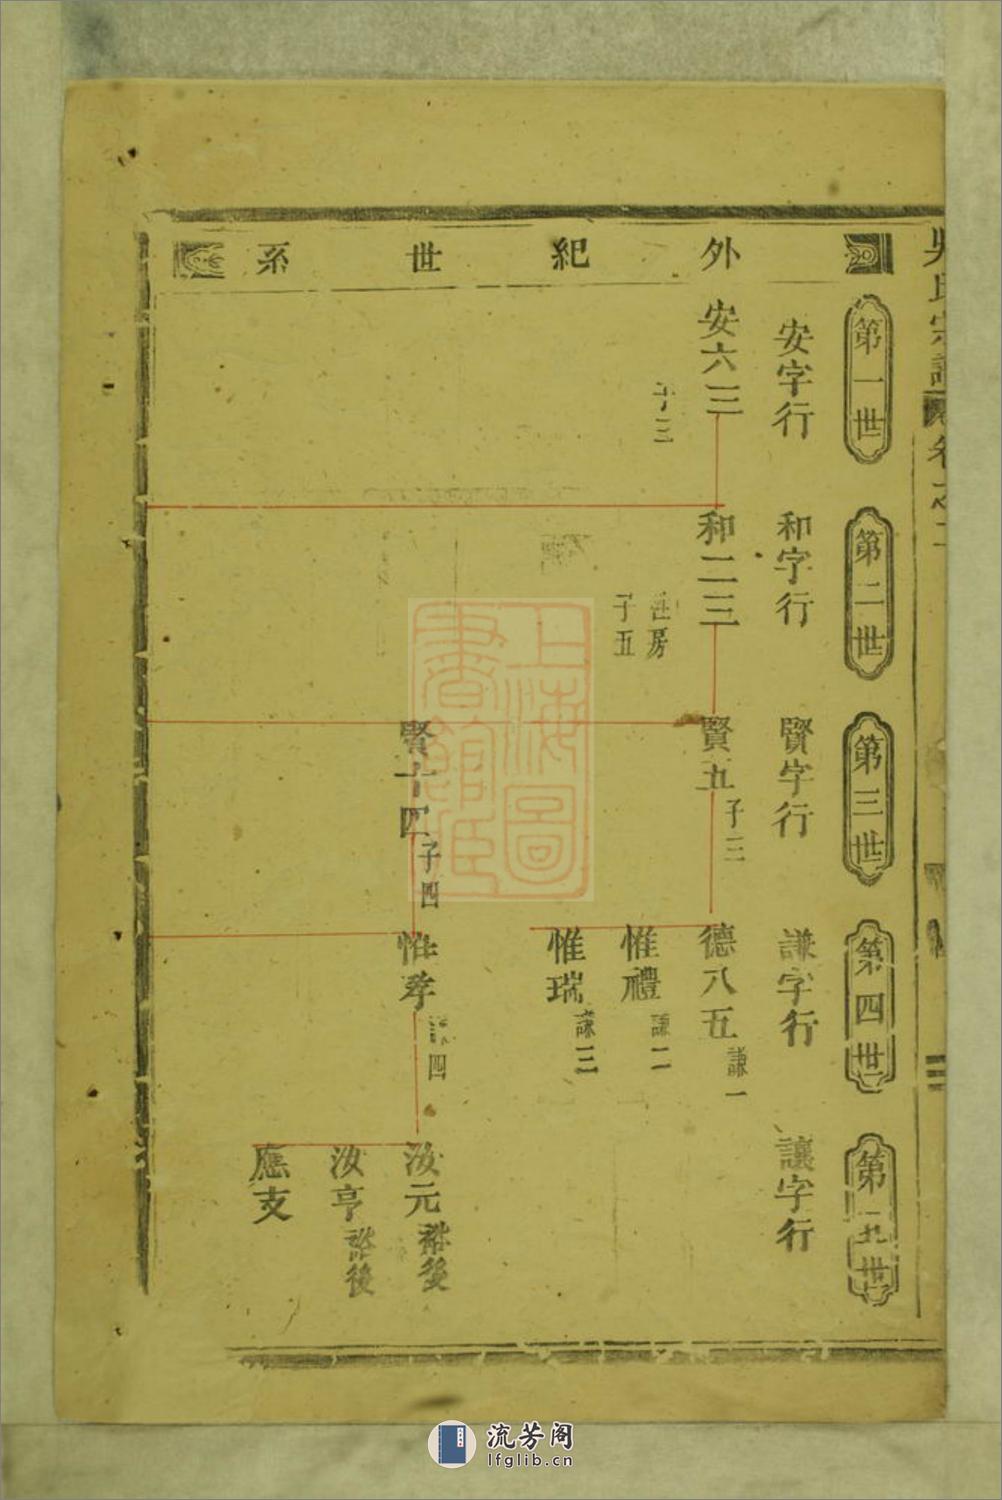 吳氏宗譜 卷之二
外紀世系
第一世
安字行
安六三
子三
第二世
和字行
和二三
子五
第三世
賢字行
賢五
子三
賢十四
子四
第四世
謙字行
德八五
謙一
惟禮
謙二
惟瑞
謙三
惟孝
謙四
第五世
讓字行
汝元
汝亨
應支
上海圖書館藏
流芳阁
lfglib.cn